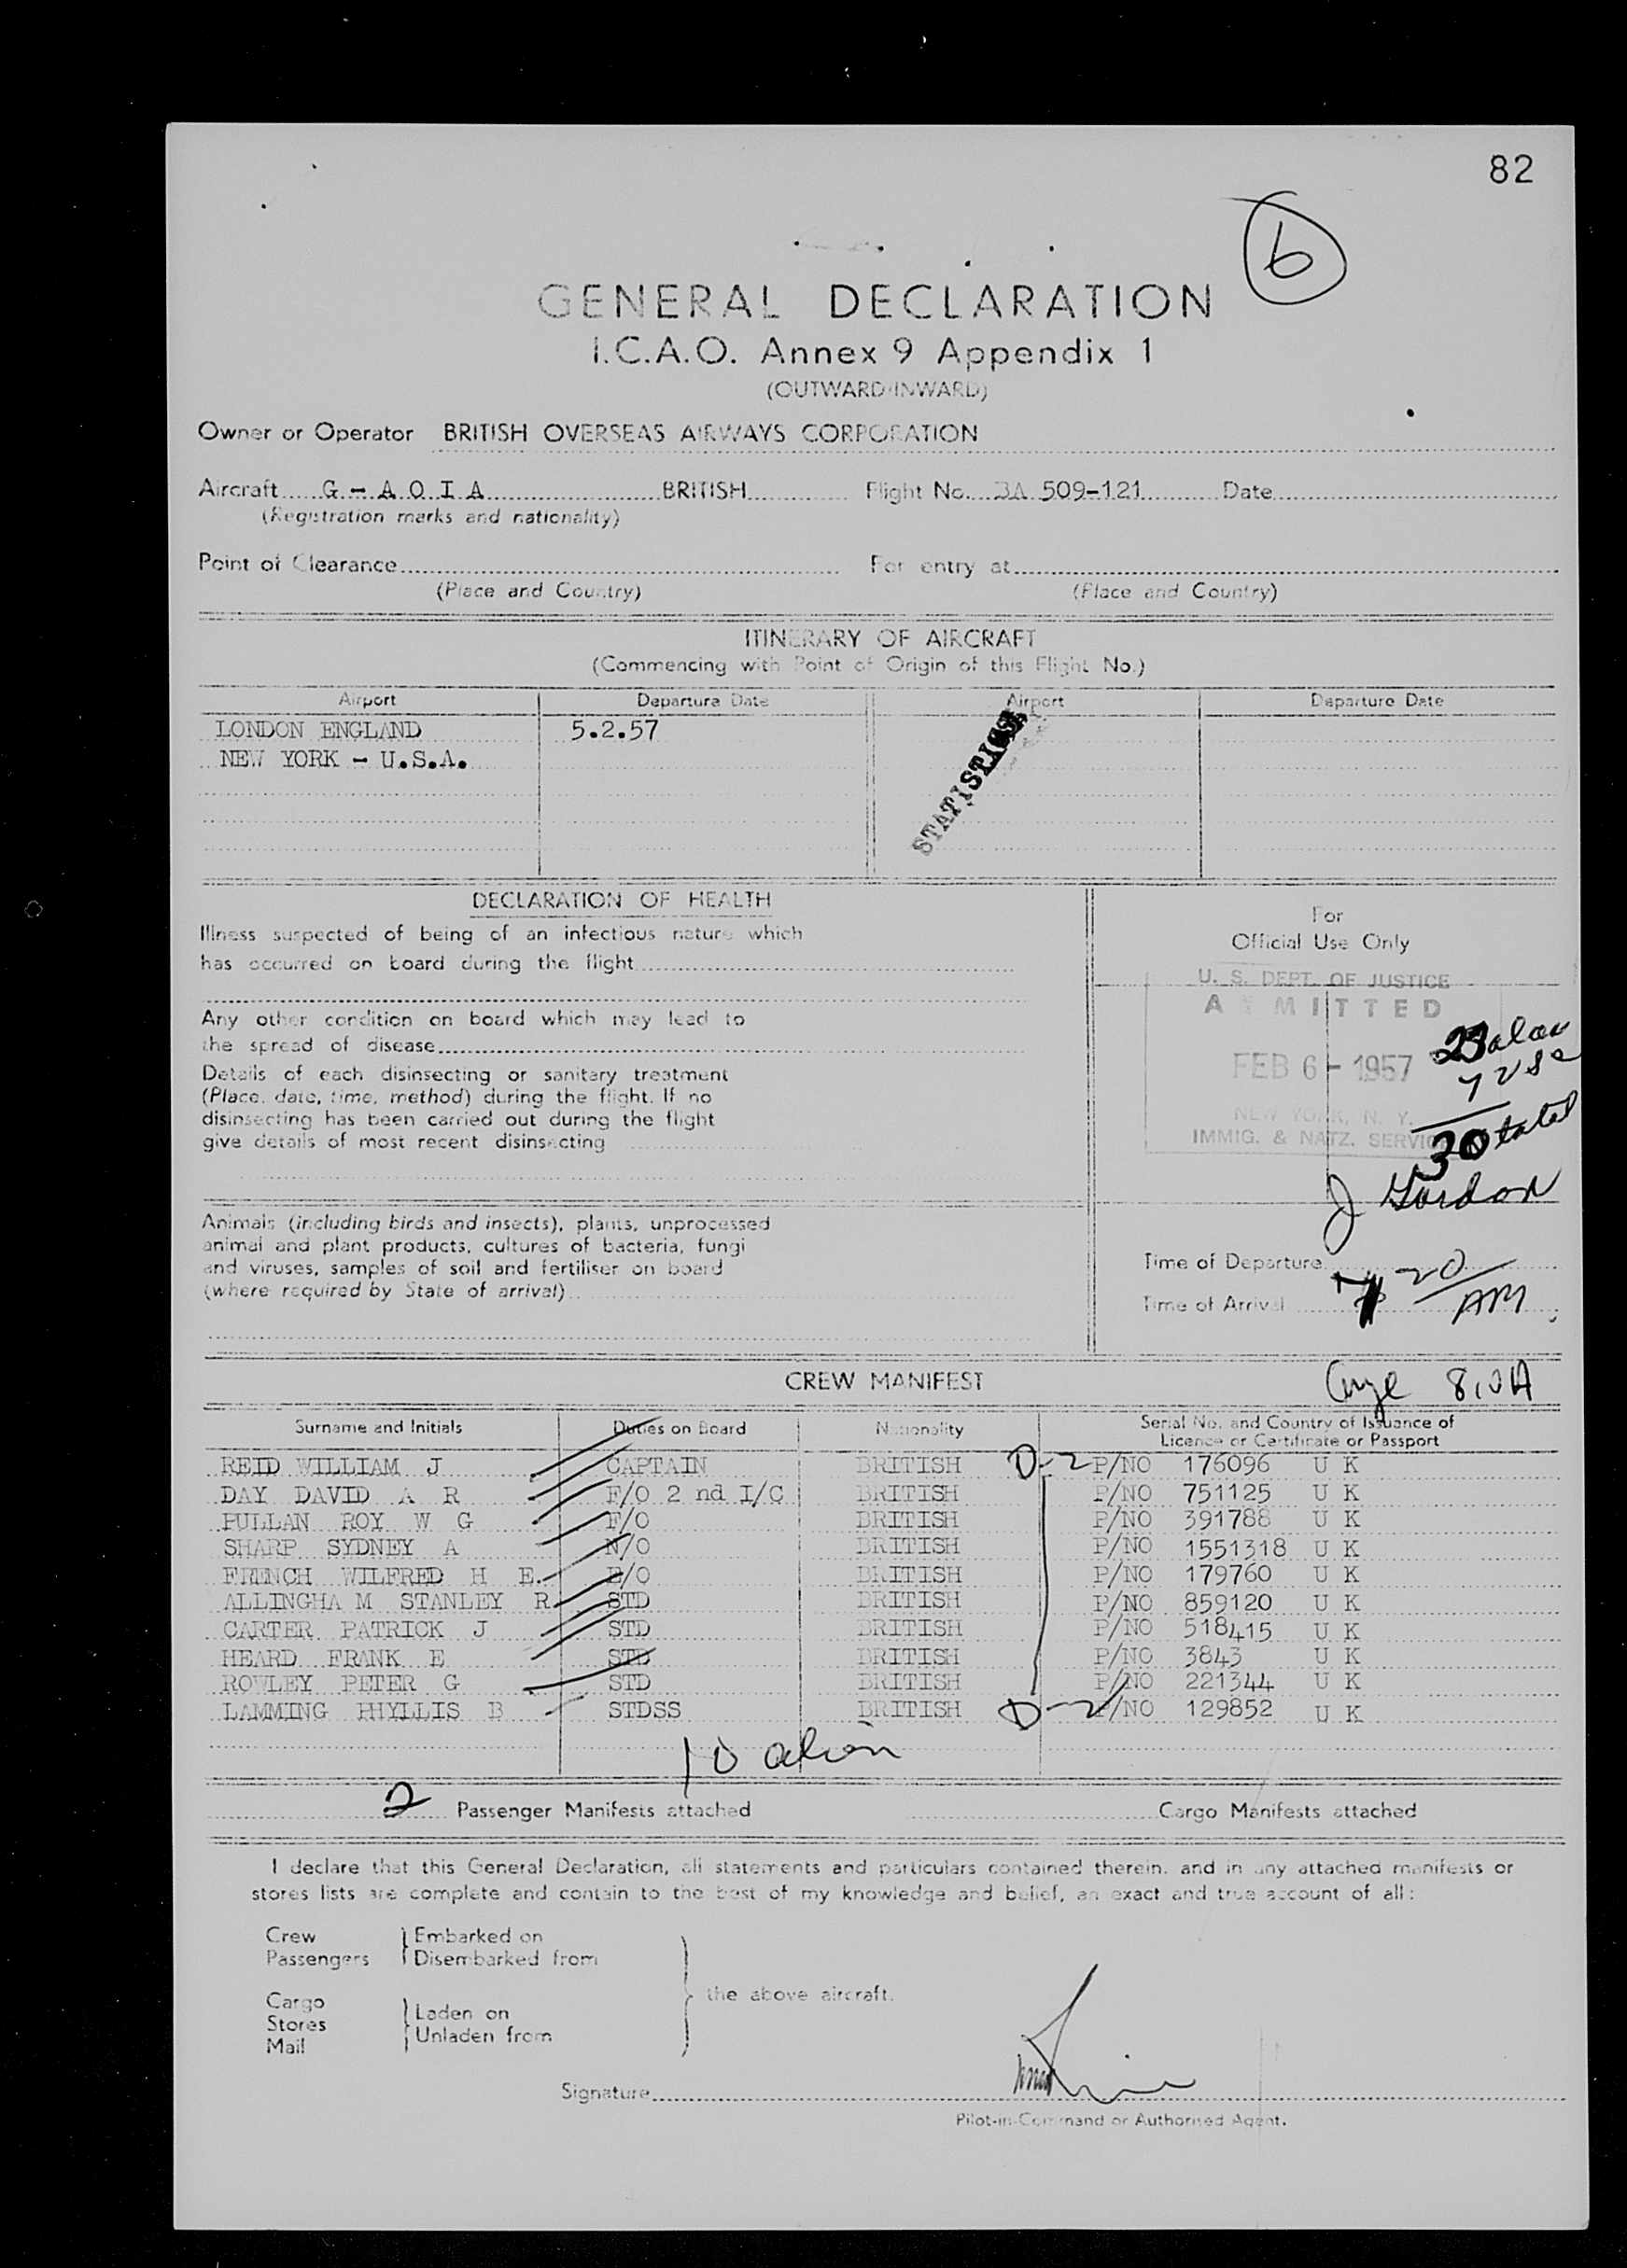 82
6
GENERAL DECLARATION
I.C.A.O. Annex 9 Appendix 1
(OUTWARD/INWARD)
Owner or Operator BRITISH OVERSEAS AIRWAYS CORPORATION
Aircraft G - A O I A BRITISH Flight No. BA 509-121 Date
(Registration marks and nationality)
Point of Clearance For entry at
(Place and Country) (Place and Country)
ITINERARY OF AIRCRAFT
(Commencing with Point of Origin of this Flight No.)
Airport Departure Date Airport Departure Date
LONDON ENGLAND 5.2.57
NEW YORK - U.S.A.
STATISTICS
DECLARATION OF HEALTH
Illness suspected of being of an infectious nature which
has occurred on board during the flight
Any other condition on board which may lead to
the spread of disease
Details of each disinsecting or sanitary treatment
(Place, date, time, method) during the flight. If no
disinsecting has been carried out during the flight
give details of most recent disinsecting
Animals (including birds and insects), plants, unprocessed
animal and plant products, cultures of bacteria, fungi
and viruses, samples of soil and fertiliser on board
(where required by State of arrival)
For
Official Use Only
U. S. DEPT. OF JUSTICE
ADMITTED
FEB 6 - 1957
NEW YORK, N. Y.
IMMIG. & NATZ. SERVICE
7 USC
30 total
J Gordon
Time of Departure
Time of Arrival 7 20 AM
CREW MANIFEST
Surname and Initials Duties on Board Nationality Serial No. and Country of Issuance of
Licence or Certificate or Passport
REID WILLIAM J CAPTAIN BRITISH D-2 P/NO 176096 U K
DAY DAVID A R F/O 2 nd I/C BRITISH P/NO 751125 U K
PULLAN ROY W G F/O BRITISH P/NO 391788 U K
SHARP SYDNEY A N/O BRITISH P/NO 1551318 U K
FRENCH WILFRED H E. E/O BRITISH P/NO 179760 U K
ALLINGHA M STANLEY R STD BRITISH P/NO 859120 U K
CARTER PATRICK J STD BRITISH P/NO 518415 U K
HEARD FRANK E STD BRITISH P/NO 3843 U K
ROWLEY PETER G STD BRITISH P/NO 221344 U K
LAMMING PHYLLIS B STDSS BRITISH D-2 P/NO 129852 U K
10 alien
2 Passenger Manifests attached Cargo Manifests attached
I declare that this General Declaration, all statements and particulars contained therein, and in any attached manifests or
stores lists are complete and contain to the best of my knowledge and belief, an exact and true account of all:
Crew Embarked on
Passengers Disembarked from
the above aircraft.
Cargo
Stores Laden on
Mail Unladen from
Signature
Pilot-in-Command or Authorised Agent.